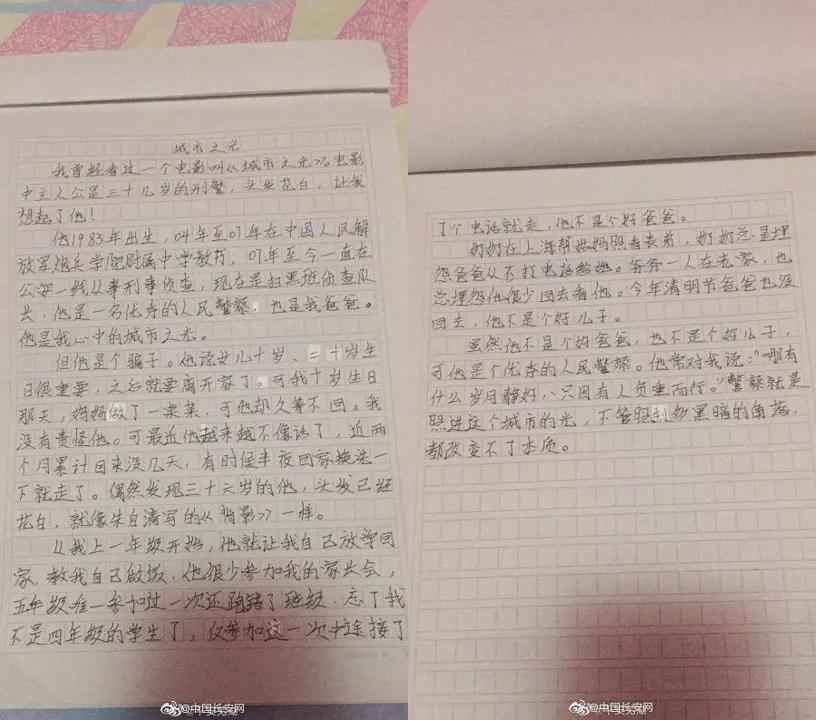 城市之光
我曾经看过一个电影叫《城市之光》。电影
中主人公是三十几岁的刑警，头发花白，让我
想起了他！
他1983年出生，04年至07年在中国人民解
放军炮兵学院附属中学教书，07年至今一直在
公安一线从事刑事侦查，现在是扫黑班侦查队
长，他是一名优秀的人民警察，也是我爸爸。
他是我心中的城市之光。
但他是个骗子。他说女儿十岁、二十岁生
日很重要，之后就要离开家了。可我十岁生日
那天，妈妈做了一桌菜，可他却久等不回。我
没有责怪他。可最近他越来越不像话了，近两
个月累计回来没几天，有时候半夜回家换洗一
下就走了。偶然发现三十六岁的他，头发已经
花白，就像朱自清写的《背影》一样。
从我上一年级开始，他就让我自己放学回
家，教我自己做饭，他很少参加我的家长会，
五年级唯一参加过一次还跑错了班级，忘了我
不是四年级的学生了，仅参加这一次中途接了
了个电话就走，他不是个好爸爸。
奶奶在上海帮姑妈照看表弟，奶奶总是埋
怨爸爸从不打电话给她。爷爷一人在老家，也
总埋怨他很少回去看他。今年清明节爸爸也没
回去，他不是个好儿子。
虽然他不是个好爸爸，也不是个好儿子，
可他是个优秀的人民警察。他常对我说："哪有
什么岁月静好，只因有人负重而行。"警察就是
照进这个城市的光，不管照到多黑暗的角落，
都改变不了本质。
@中国长安网
@中国长安网